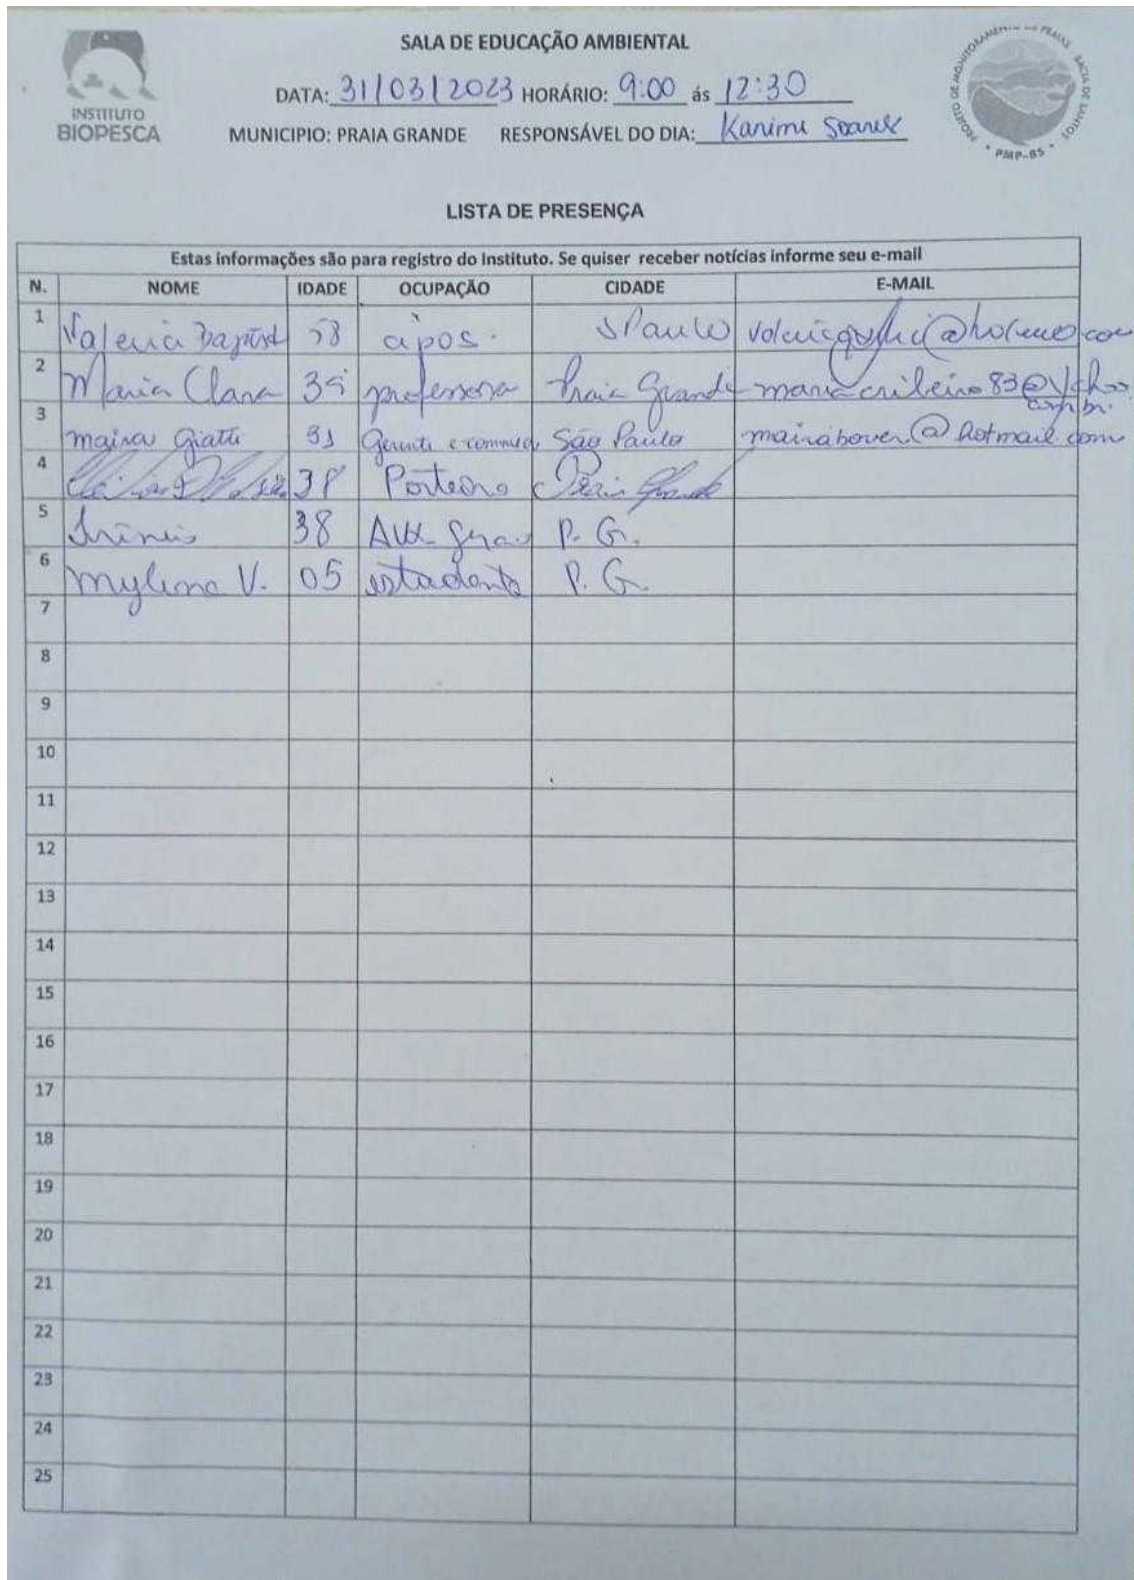 INSTITUTO
BIOPESCA
SALA DE EDUCAÇÃO AMBIENTAL
DATA: 31/03/2023 HORÁRIO: 9:00 ás 12:30
MUNICIPIO: PRAIA GRANDE RESPONSÁVEL DO DIA: Karime Soares
PROJETO DE MONITORAMENTO DE PRAIAS BACIA DE SANTOS
PMP-BS
LISTA DE PRESENÇA
Estas informações são para registro do Instituto. Se quiser receber notícias informe seu e-mail
N. NOME IDADE OCUPAÇÃO CIDADE E-MAIL
1 Valeria 58 apos. SPaulo
2 Maria Clara professora Praia Grande
3 maira Giatti 31 Gerente São Paulo @hotmail.com
4 38 Porteiro Praia Grande
5 38 Aux P. G.
6 mylena V. 05 estudante P. G.
7
8
9
10
11
12
13
14
15
16
17
18
19
20
21
22
23
24
25